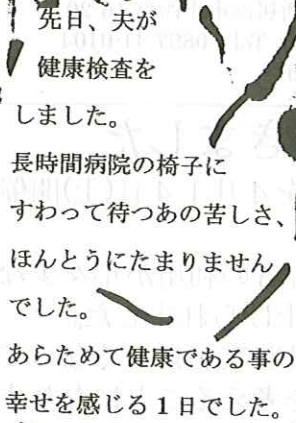 先日、夫が
健康検査を
しました。
長時間病院の椅子に
すわって待つあの苦しさ、
ほんとうにたまりません
でした。
あらためて健康である事の
幸せを感じる1日でした。